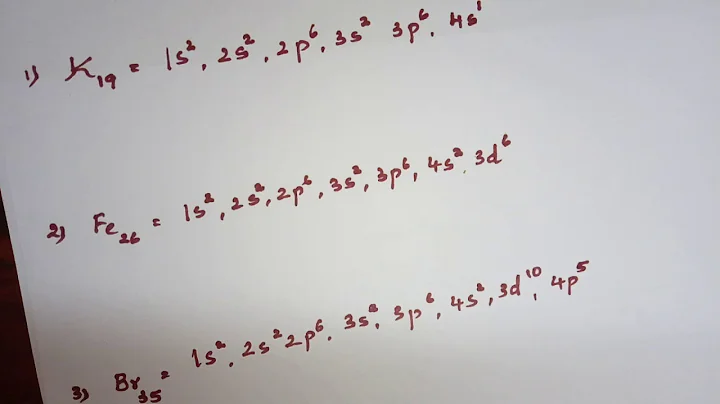 1) K₁₉ = 1s², 2s², 2p⁶, 3s² 3p⁶, 4s¹
2) Fe₂₆ = 1s², 2s², 2p⁶, 3s², 3p⁶, 4s², 3d⁶
3) Br₃₅ = 1s², 2s² 2p⁶, 3s², 3p⁶, 4s², 3d¹⁰, 4p⁵